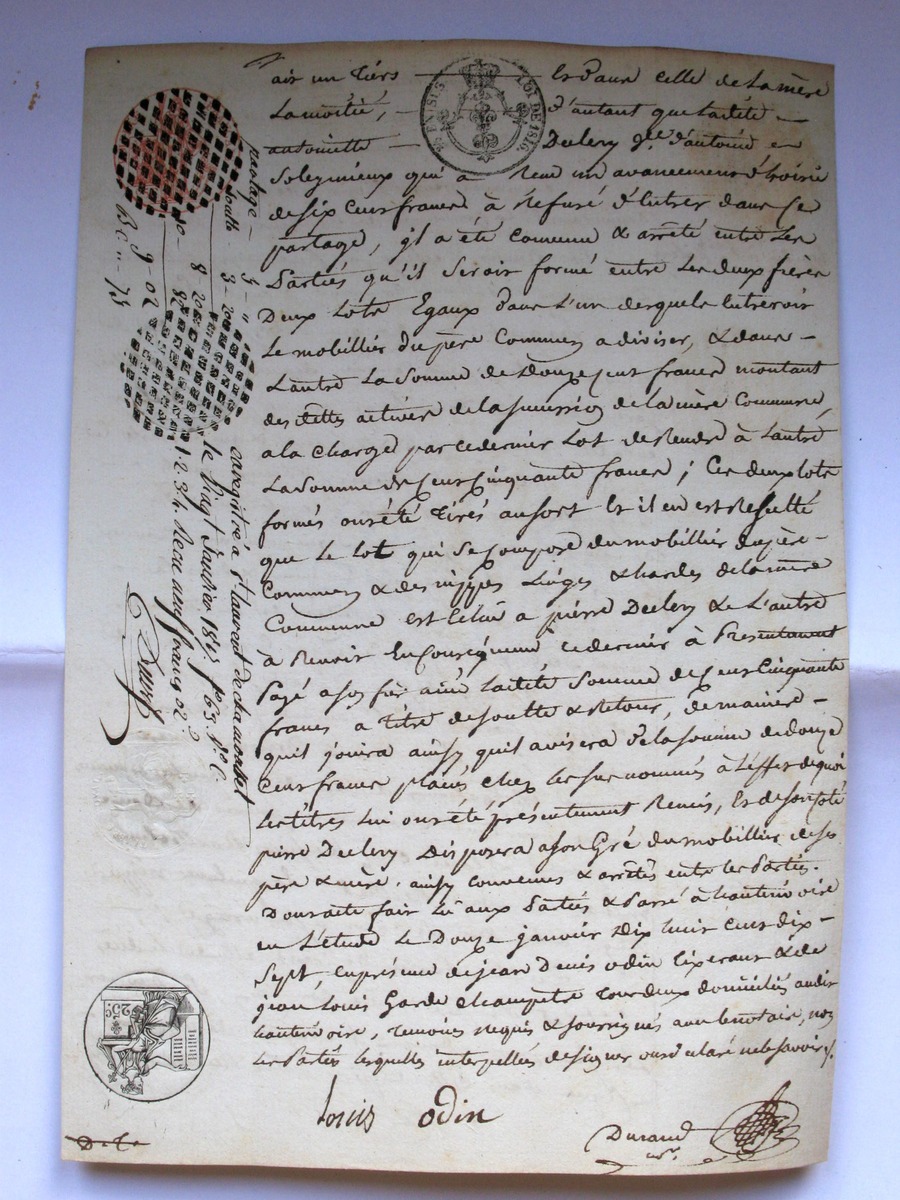 air un tiers — Et dans celle de la mère
La moitié, — d'autant que ladite —
antoinette — Declery
Soleymieux qui a Recu un avancement d'hoirie
de six cens francs a Refusé d'Entrer dans ce
partage, il a été convenu & arrêté entre Les
Parties qu'il seroit formé entre Les deux frères
Deux Lots Egaux dans L'un desquels Entreroit
Le mobillier du père Commun a diviser, & dans —
L'autre La Somme de Douze cens francs montant
des dettes actives de la succession de la mère Commune,
a la charge par ce dernier Lot de Rendre à L'autre
La Somme de cens Cinquante francs ; Ces deux lots
formés ont été Tirés au sort Et il en est Resulté
que Le Lot qui se compose du mobillier du père —
Commun & des nippes Linges & hardes de la mère
Commune est Echu a pierre Declery & L'autre
à Benoit En conséquence ce dernier à Presentement
payé a son frère ainé Ladite Somme de cens Cinquante
francs a titre de soulte & Retour, de manière —
qu'il jouira ainsy qu'il avisera de la somme de douze
Cens francs placés chez Les sus nommés à L'effet de quoi
Les titres Lui ont été présentement Remis, Et de son côté
pierre Declery Disposera a son Gré du mobillier de ses
père & mère. ainsy convenus & arretés entre les Parties.
Dont acte fait Lû aux Parties & Passé à hautenvoire
en L'étude Le Douze janvier Dix huit cens dix —
Sept, En présence de jean Denis odin & de
jean Louis Garde champetre tous deux domiciliés audit
hautenvoire, Temoins requis & soussignés avec le notaire, non
Les Parties Lesquelles interpellées de signer ont déclaré ne le savoir.
Louis odin
Durand
partage — 3 - "
Soulte 3 - 20
8 20
82
9 - 02
73
Enregistré à St Laurent de chamousset
le Vingt Janvier 1817. fo 63. Ro C.
1. 2. 3. 4. Recu neuf francs 02 c
LOI DE 1816.
25 c.